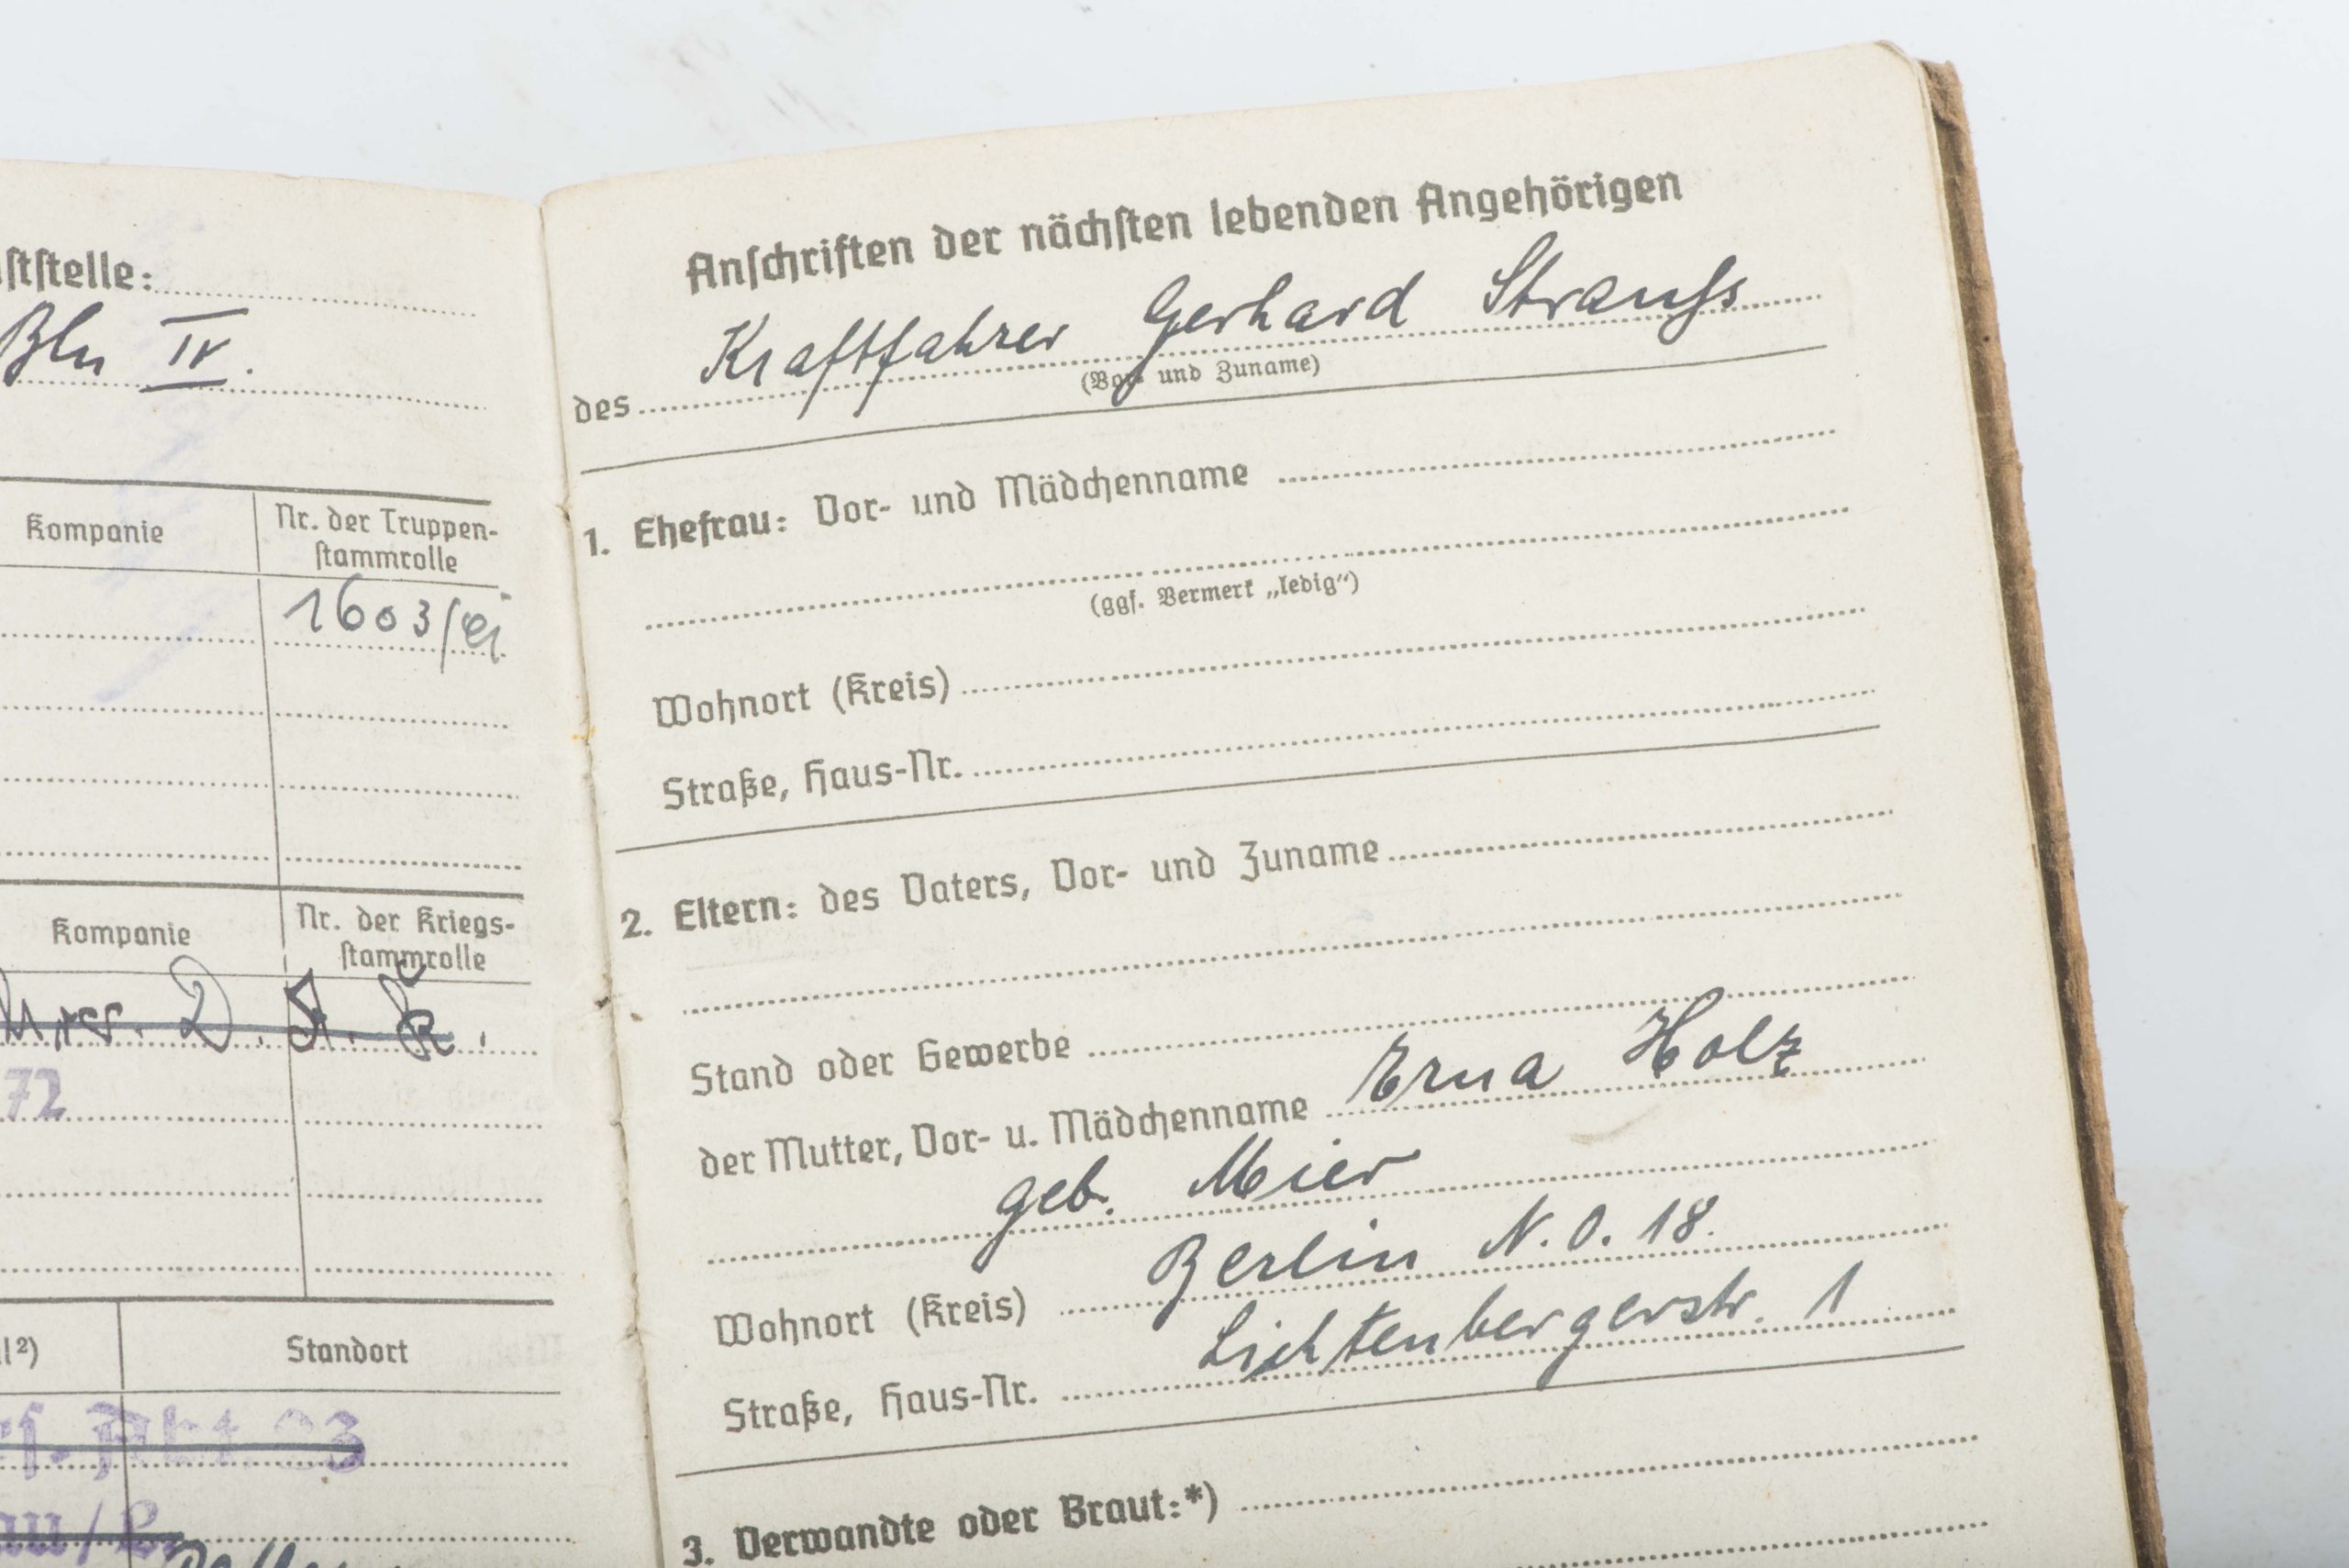 ststelle:
Bln IV.
Kompanie
Nr. der Truppen-
stammrolle
1603/
Kompanie
Nr. der Kriegs-
stammrolle
D. A. K.
72
l²)
Standort
Abt. 33
au/
Anschriften der nächsten lebenden Angehörigen
des Kraftfahrer Gerhard Strauss
(Vor- und Zuname)
1. Ehefrau: Vor- und Mädchenname
(ggf. Vermerk „ledig“)
Wohnort (Kreis)
Straße, Haus-Nr.
2. Eltern: des Vaters, Vor- und Zuname
Stand oder Gewerbe
der Mutter, Vor- u. Mädchenname Erna Holz
geb. Meier
Wohnort (Kreis) Berlin N.O. 18.
Straße, Haus-Nr. Lichtenbergerstr. 1
3. Verwandte oder Braut:*)